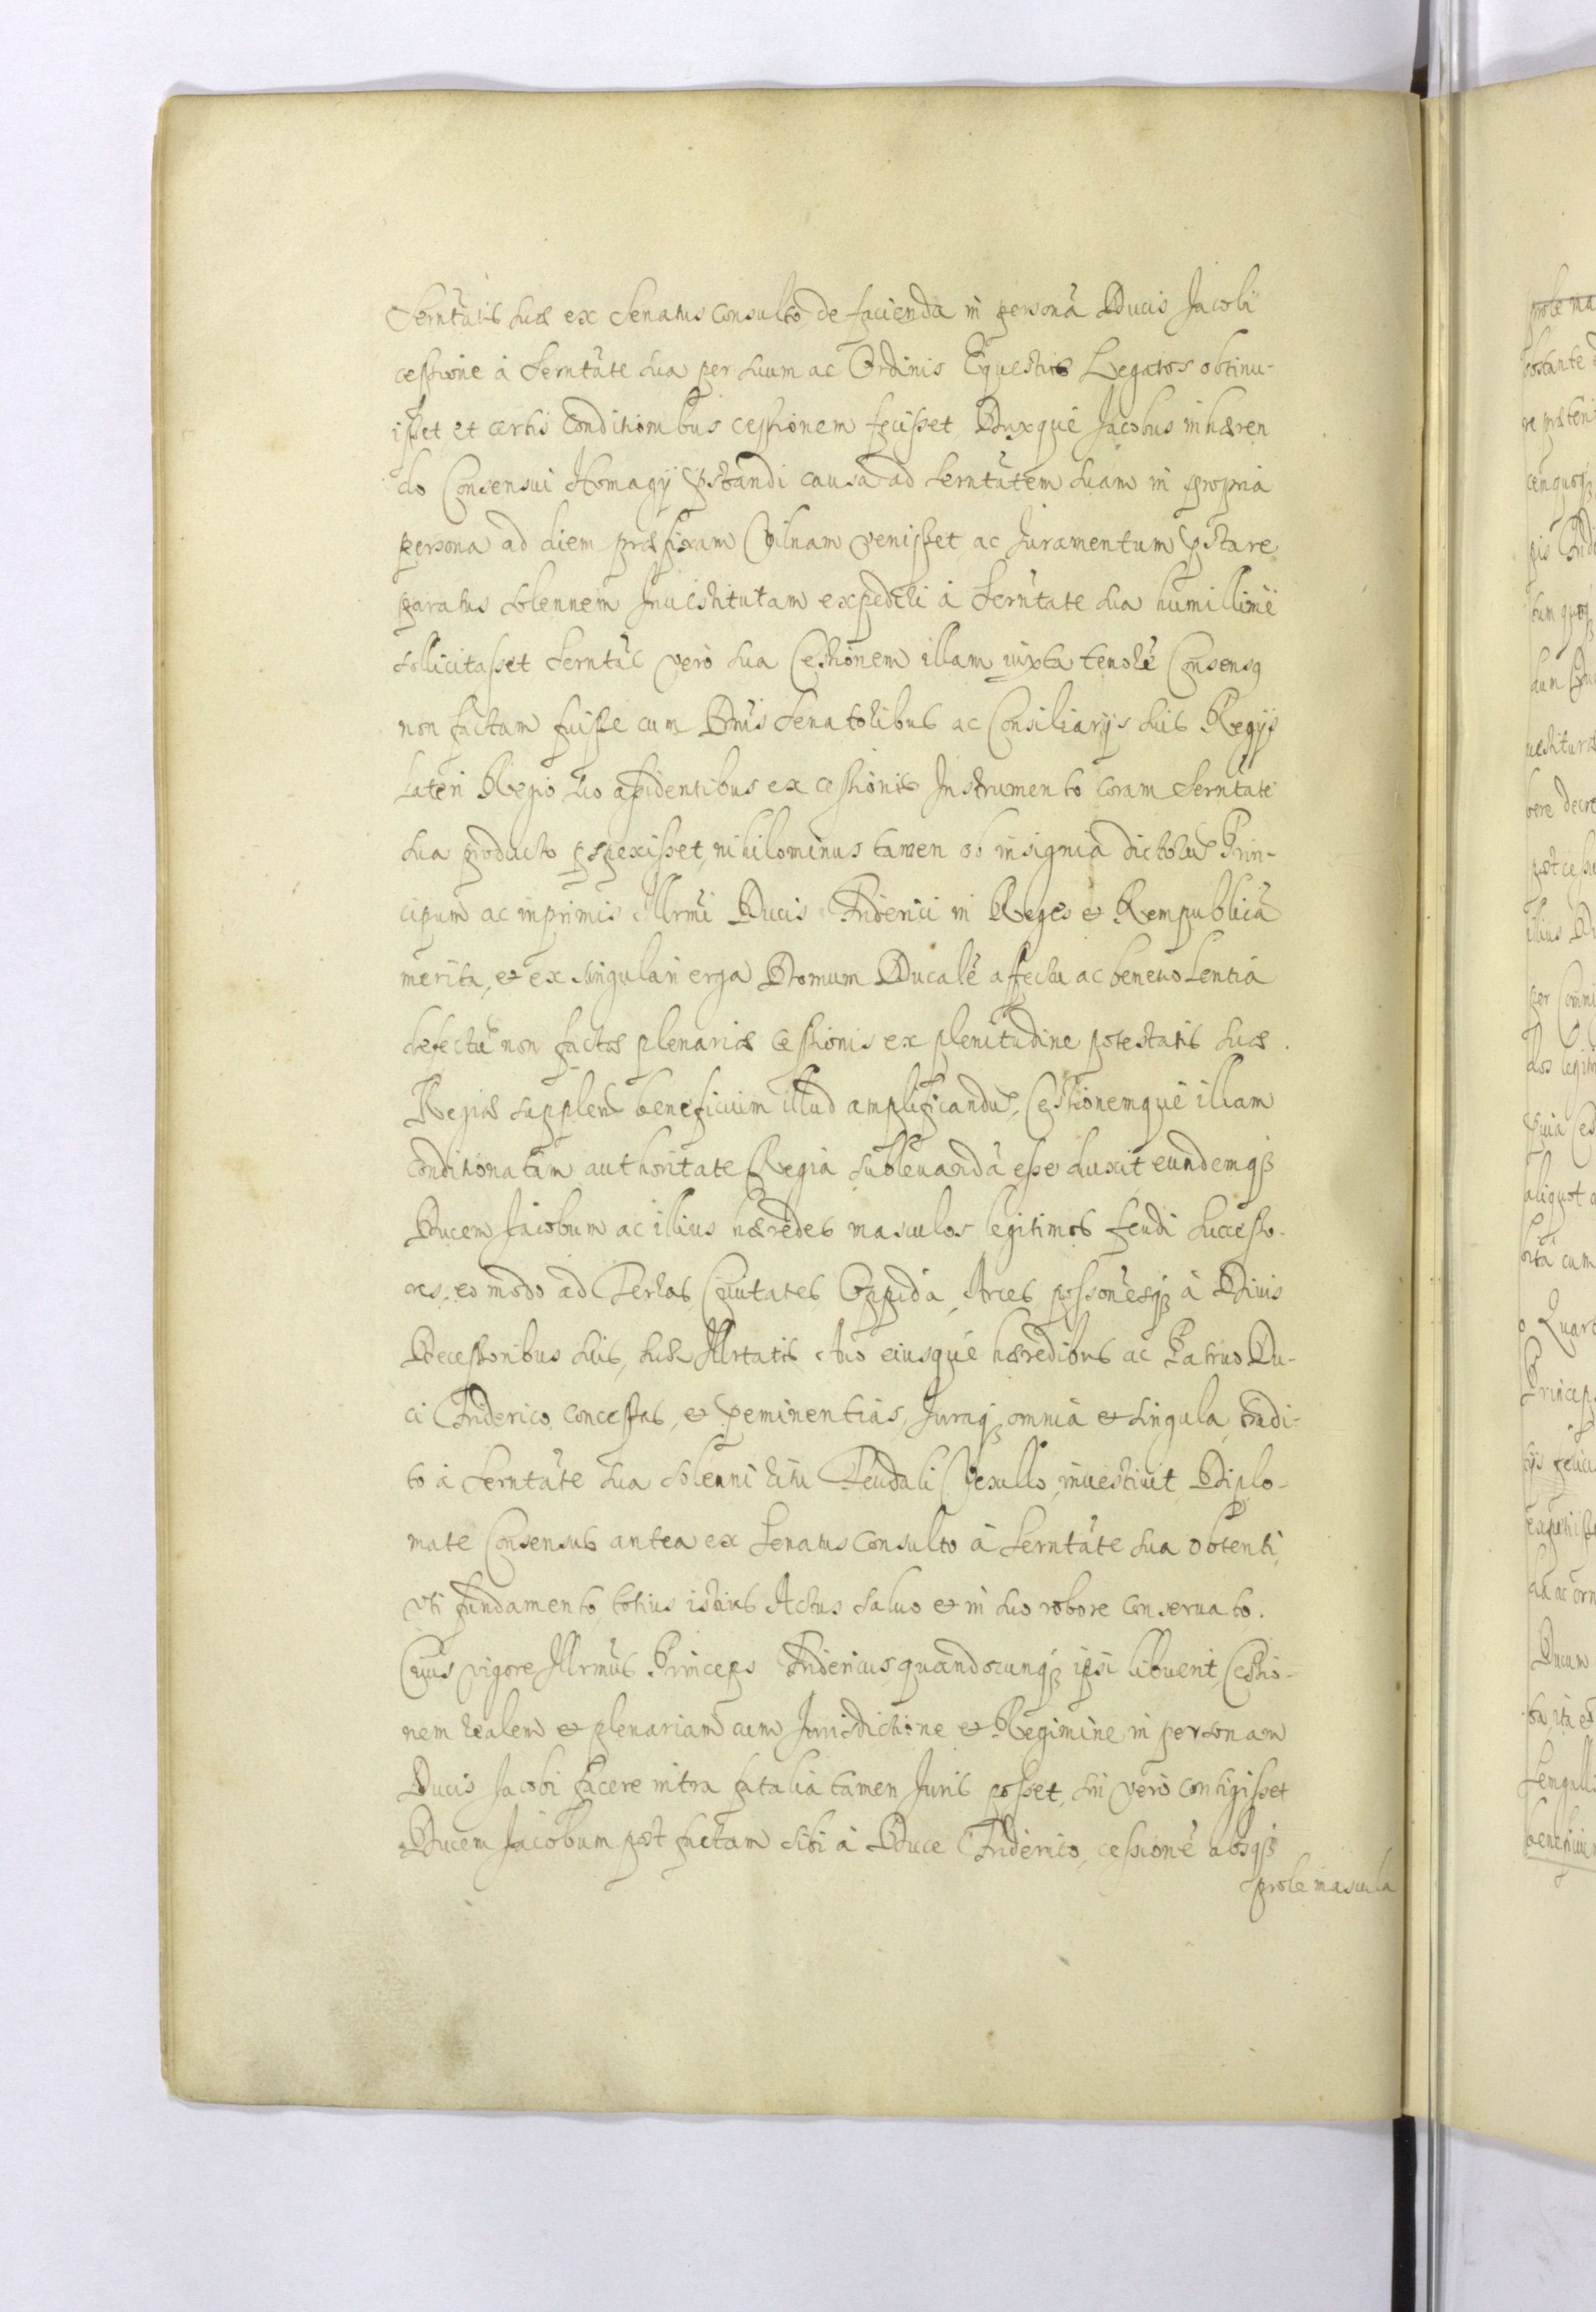 Serntatis suæ ex Senatus consulto de facienda in personã Ducis Jacobi
cessione à Serntate sua per suum ac Ordinis Equestris Legatos obtinu-
isset, et certis conditionibus cessionem fecisset, Duxque Jacobus inhæren
do Consensui Homagÿ pstandi causa ad Serntatem suam in propria
persona ad diem præfixam Vilnam venisset, ac Juramentum pstare
paratus solennem Inuestituram expediri à Serntate sua humillimè
sollicitasset Serntas verò sua Cessionem illam iuxta tenorẽ Consensq
non factam fuisse cum Dnis Senatoribus ac Consiliarÿs suis Regÿs
Lateri Regio suo assidentibus ex cessionis Instrumento coram Serntate
sua producto pspexisset, nihilominus tamen ob insignia dictorum Prin-
cipum ac inprimis Illrmi Ducis Friderici in Reges et Rempublicã
merita, et ex singulari erga Domum Ducalẽ affectu ac beneuolentia
defectũ non factæ plenariæ cessionis ex plenitudine potestatis suæ
Regiæ supplens beneficium illud amplificandũ, Cessionemque illam
conditionatam authoritate Regia subleuandã esse duxit eundemqꝫ
Ducem Jacobum ac illius hæredes masculos legitimos feudi successo-
res, eo modo ad Terras, Ciuitates Oppida, Arces, possonesqꝫ à Diuis
Decessoribus suis, suæ Illrtatis Auo eiusque hæredibus ac Patruo Du-
ci Friderico concessas, et peminentias, Juraqꝫ omnia et singula, tradi-
to à Serntate sua solenni ritu Feudali Vexillo, inuestiuit, Diplo-
mate Consensus antea ex Senatus consulto à Serntate sua obtenti,
vti fundamento totius istius Actus saluo et in suo robore conseruato.
Cuius vigore Illrmus Princeps Fridericus quandocunqꝫ ipsi libuerit, Cessio-
nem realem et plenariam cum Jurisdictione et Regimine in personam
Ducis Jacobi facere intra fatalia tamen Juris posset, sin verò contigisset
Ducem Jacobum post factam sibi à Duce Friderico, cessionẽ absqꝫ
prole mascula